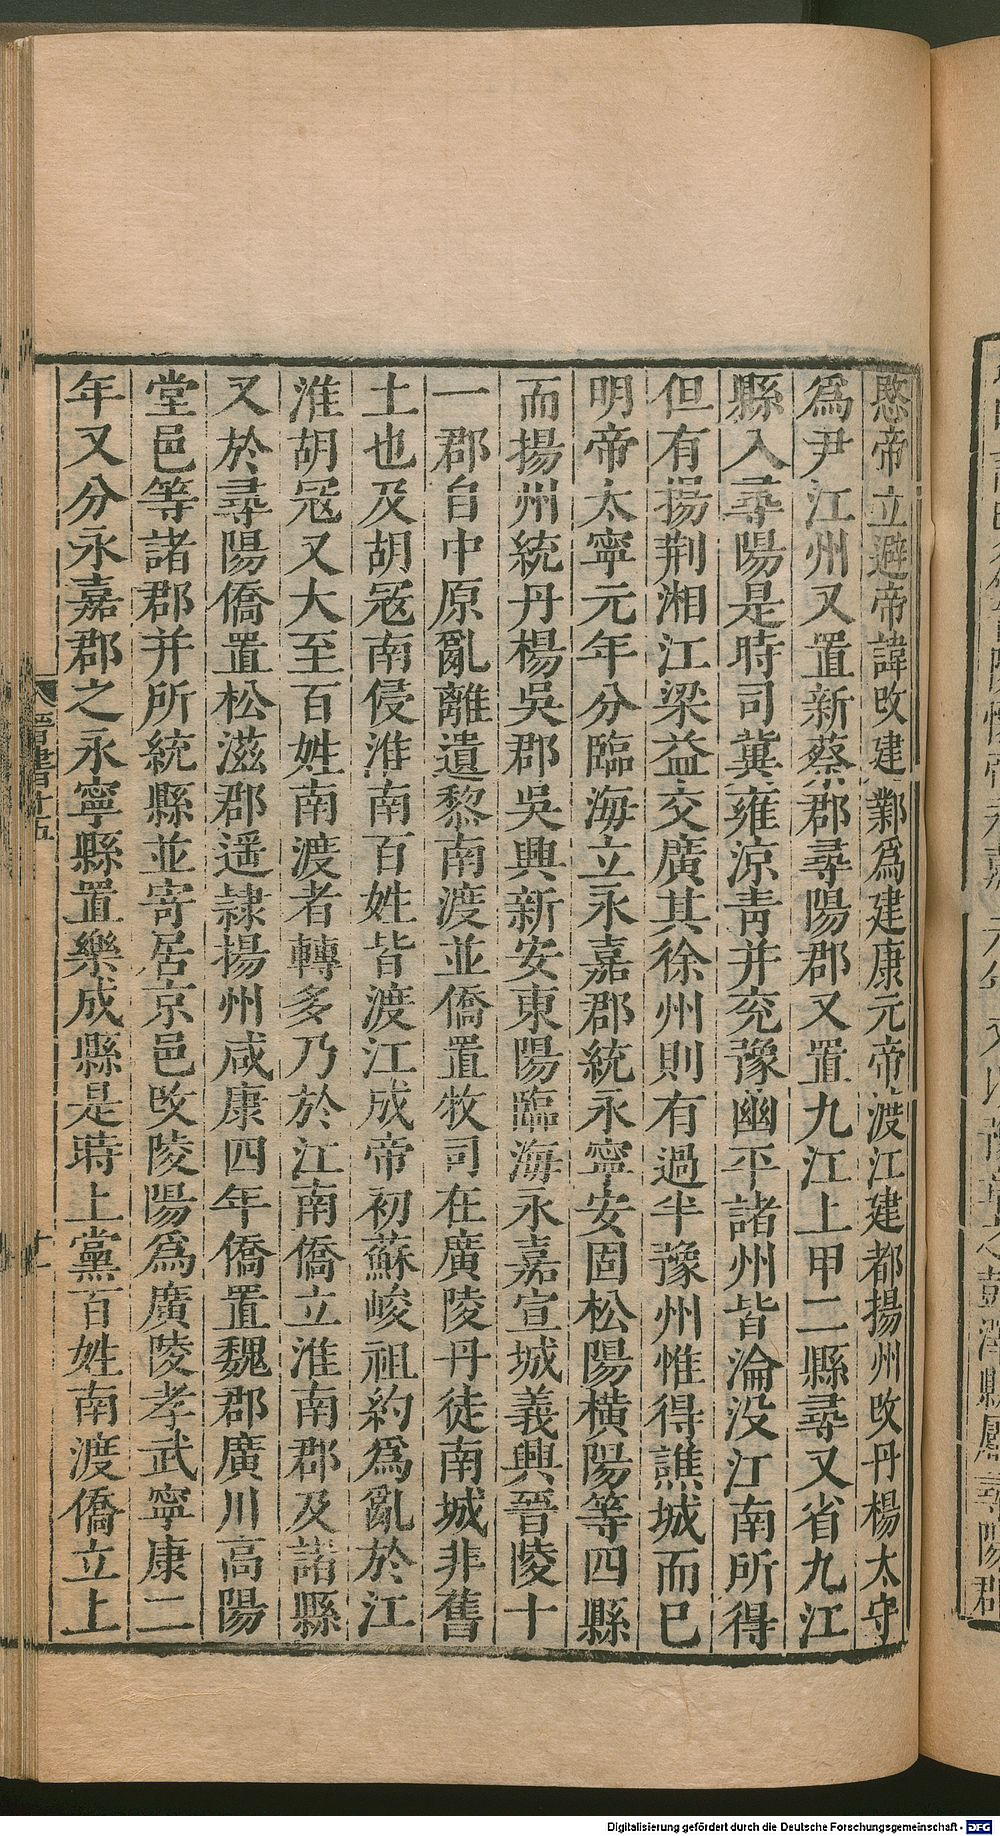 愍帝立避帝諱改建鄴爲建康元帝渡江建都揚州改丹楊太守
爲尹江州又置新蔡郡尋陽郡又置九江上甲二縣尋又省九江
縣入尋陽是時司冀雍涼青并兖豫幽平諸州皆淪没江南所得
但有揚荆湘江梁益交廣其徐州則有過半豫州惟得譙城而巳
明帝太寧元年分臨海立永嘉郡統永寧安固松陽横陽等四縣
而揚州統丹楊吳郡吳興新安東陽臨海永嘉宣城義興晉陵十
一郡自中原亂離遺黎南渡並僑置牧司在廣陵丹徒南城非舊
土也及胡宼南侵淮南百姓皆渡江成帝初蘇峻祖約爲亂於江
淮胡宼又大至百姓南渡者轉多乃於江南僑立淮南郡及諸縣
又於尋陽僑置松滋郡遥隷揚州咸康四年僑置魏郡廣川高陽
堂邑等諸郡并所統縣並寄居京邑改陵陽爲廣陵孝武寧康二
年又分永嘉郡之永寧縣置樂成縣是時上黨百姓南渡僑立上
晉書十五
十一
Digitalisierung gefördert durch die Deutsche Forschungsgemeinschaft - DFG